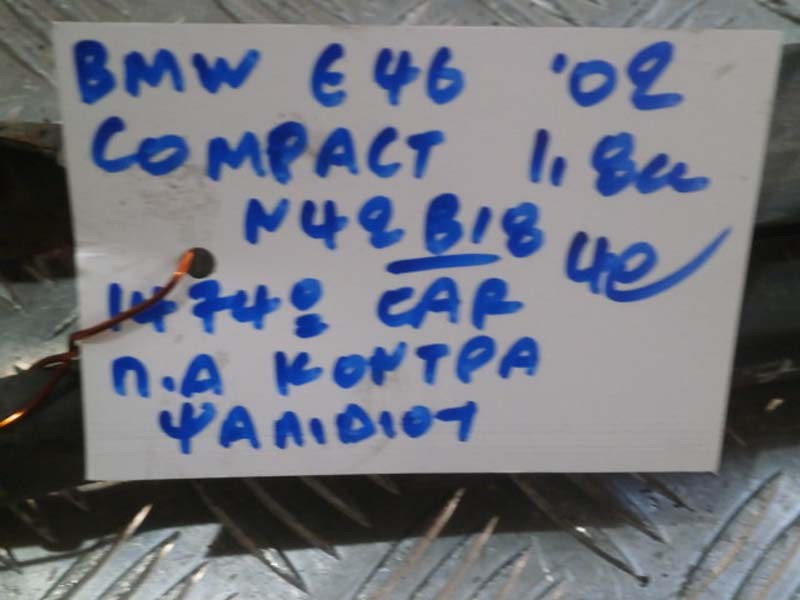 BMW E46 '02
COMPACT 1,8cc
N42B18 4θ
1474º CAR
Π.Δ ΚΟΝΤΡΑ
ΨΑΛΙΔΙΟΥ